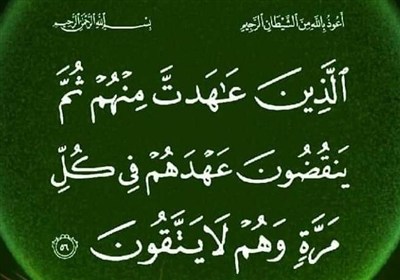 أعوذ بالله من الشيطان الرجيم بسم الله الرحمن الرحيم
ٱلَّذِينَ عَٰهَدتَّ مِنۡهُمۡ ثُمَّ
يَنقُضُونَ عَهۡدَهُمۡ فِي كُلِّ
مَرَّةٖ وَهُمۡ لَا يَتَّقُونَ ٥٦